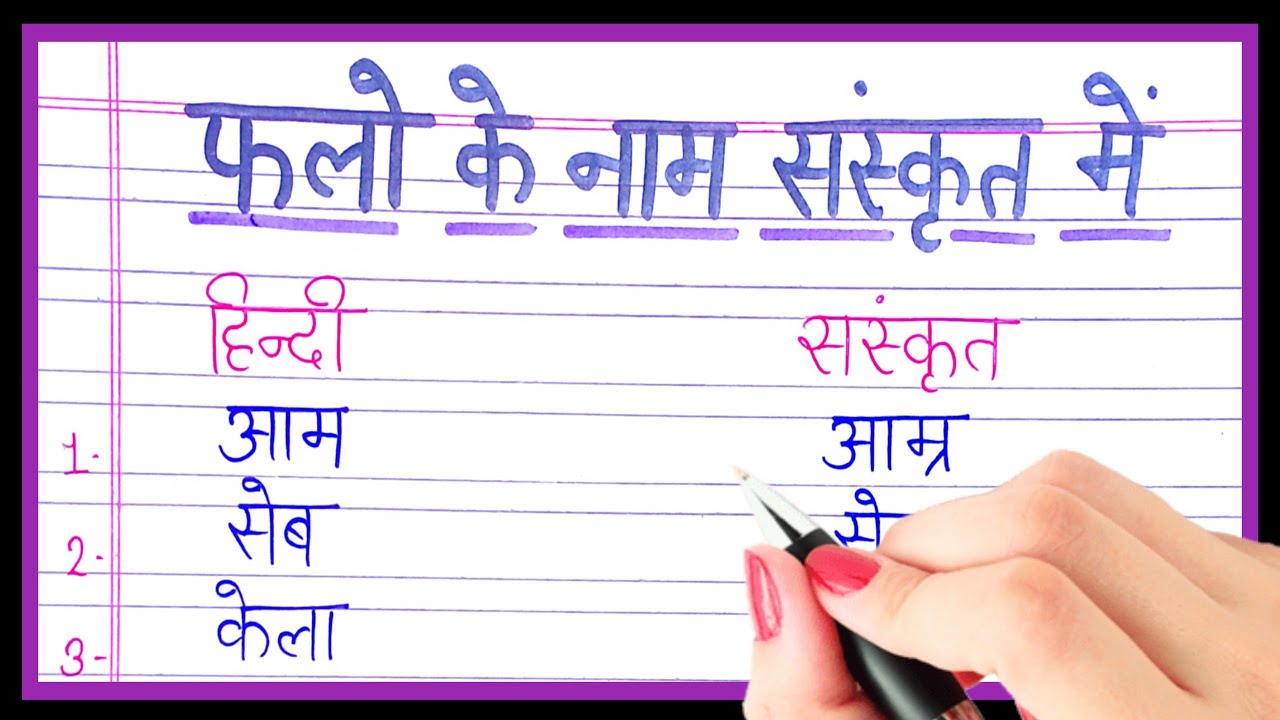 फलो के नाम संस्कृत में
हिन्दी संस्कृत
1- आम आम्र
2- सेब
3- केला